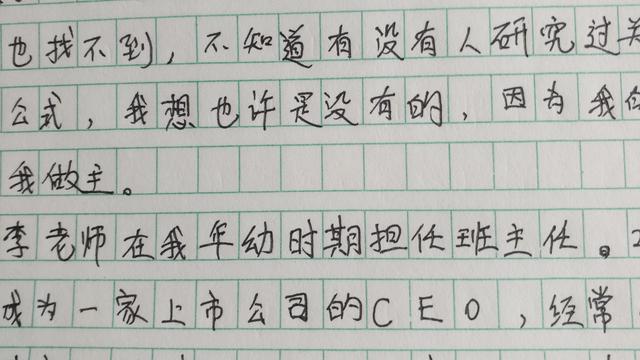 也找不到，不知道有没有人研究过关
公式，我想也许是没有的，因为我
我做主。
李老师在我年幼时期担任班主任。
成为一家上市公司的CEO，经常